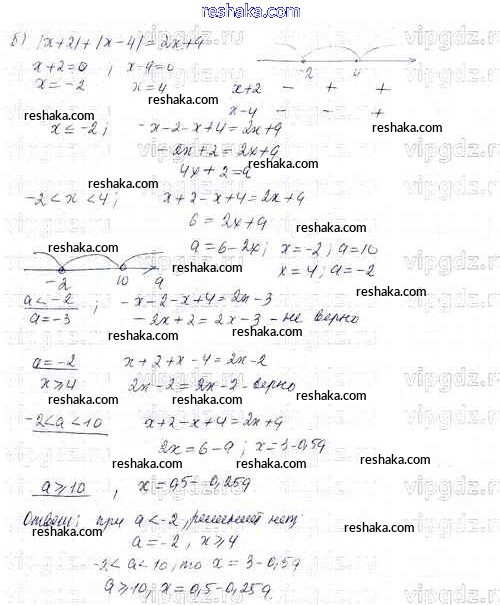 reshaka.com
б) |x+2|+|x-4|=2x+a
x+2=0 ; x-4=0
x=-2 x=4
-2 4
x+2 - + +
x-4 - - +
x≤-2; -x-2-x+4=2x+a
-2x+2=2x+a
4x+2=a
-2<x<4; x+2-x+4=2x+a
6=2x+a
a=6-2x; x=-2; a=10
x=4; a=-2
-2 10 a
a<-2 ; -x-2-x+4=2x-3
a=-3 -2x+2=2x-3 - не верно
a=-2 x+2+x-4=2x-2
x≥4 2x-2=2x-2 - верно
-2<a<10 x+2-x+4=2x+a
2x=6-a; x=3-0,5a
a≥10 , x=0,5-0,25a
Ответ: при a<-2, решений нет
a=-2, x≥4
-2<a<10, то x=3-0,5a
a≥10, x=0,5-0,25a